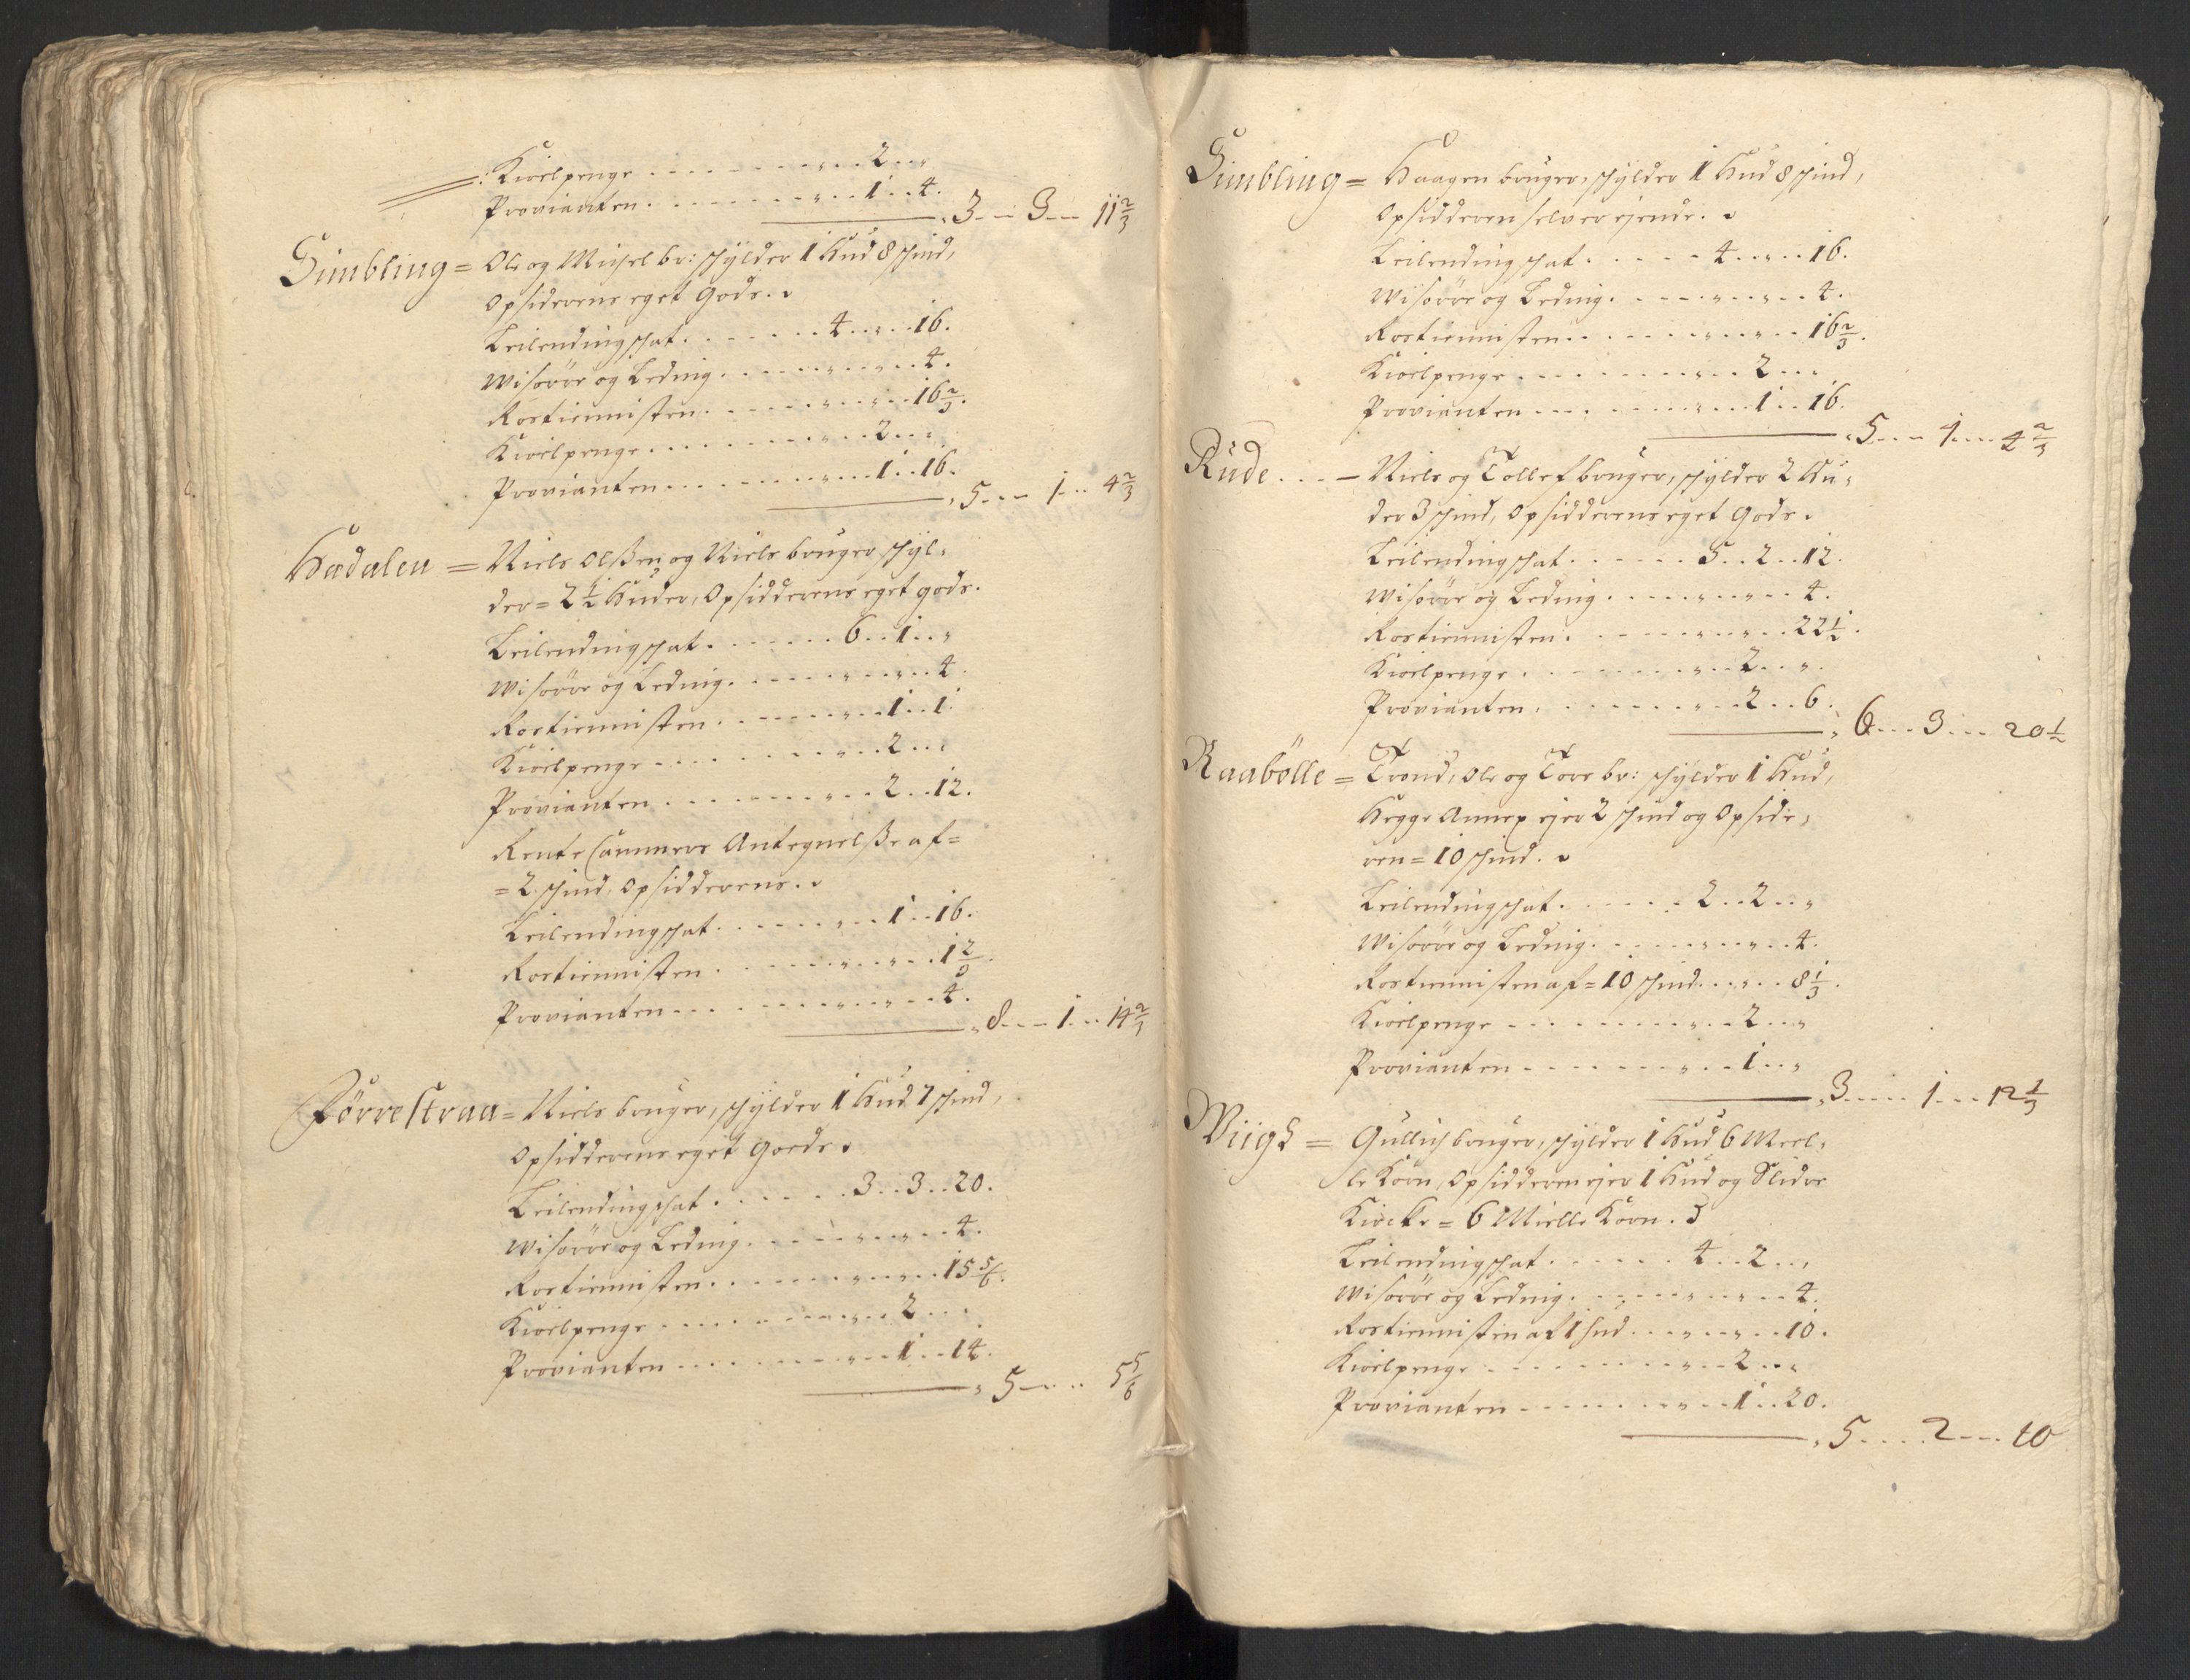 Kioelpenge . . . . . . . . . „ . . 2 . . „
Provianten . . . . . . . . „ . . 1 . . 4.
3 - - 3 - - 11 2/3
Simbling = Ole og Michel br: schylder 1 Hud 8 schind,
Opsiderens eget Gods.
Leilendingschat . . . . . . 4 . . „ . . 16.
Wisøre og Leding . . . . . „ . . „ . . 4.
Rostiennisten . . . . . . „ . . „ . . 16 2/3.
Kioelpenge . . . . . . . . „ . . 2 . . „
Provianten . . . . . . . . „ . . 1 . . 16.
5 - - - 1 - - 4 2/3
Hadalen = Niels Olßen og Niels bruger schyl-
der = 2 1/2 Huder, Opsidderens eget gods.
Leilendingschat . . . . . . 6 . . 1 . . „
Wisøre og Leding . . . . . „ . . „ . . 4.
Rostiennisten . . . . . . . „ . . 1 . . 1.
Kioelpenge . . . . . . . . „ . . 2 . . „
Provianten . . . . . . . . „ . . 2 . . 12.
Rente Cammers Antegnelße af =
= 2 schind, Opsidderens.
Leilendingschat . . . . . . „ . . 1 . . 16.
Rostiennisten . . . . . . „ . . „ . . 1 2/3.
Provianten . . . . . . . „ . . „ . . 4.
8 - - - 1 - - 14 2/3
Förrestraa = Niels bruger, schylder 1 Hud 7 schind,
Opsidderens eget Goeds.
Leilendingschat . . . . . . 3 . . 3 . . 20.
Wisøre og Leding . . . . . „ . . „ . . 4.
Rostiennisten . . . . . . „ . . „ . . 15 5/6.
Kioelpenge . . . . . . . . „ . . 2 . . „
Provianten . . . . . . . . „ . . 1 . . 14.
5 - - . . 5 5/6
Simbling = Haagen bruger, schylder 1 Hud 8 schind,
Opsidderen selver ejende.
Leilendingschat . . . . . 4 . . „ . . 16.
Wisøre og Leding . . . . . „ . . „ . . 4.
Rostiennisten . . . . . . „ . . „ . . 16 2/3.
Kioelpenge . . . . . . . . „ . . 2 . . „
Provianten . . . . . . . . „ . . 1 . . 16.
5 - - - 1 - - - 4 2/3
Rude . . . - Niels og Tollef bruger, schylder 2 Hu-
der 3 schind, Opsidderens eget Gods.
Leilendingschat . . . . . . 5 . . 2 . . 12.
Wisøre og Leding . . . . . „ . . „ . . 4.
Rostiennisten . . . . . . „ . . „ . . 22 1/2.
Kioelpenge . . . . . . . . „ . . 2 . . „.
Provianten . . . . . . . . „ . . 2 . . 6.
6 - - - 3 - - - 20 1/2
Raabölle = Trond, Ole og Tore br: schylder 1 Hud,
Hegge Annex ejer 2 schind og Opside-
ren = 10 schind.
Leilendingschat . . . . . . 2 . . 2 . . „
Wisøre og Leding . . . . . „ . . „ . . 4.
Rostiennisten af = 10 schind . . „ . . 8 1/3.
Kioelpenge . . . . . . . . „ . . 2 . . „
Provianten . . . . . . . . „ . . 1 . . „
3 - - - - 1 - - - 12 1/3
Wiig = Gullich bruger, schylder 1 Hud 6 Meel-
le Korn, Opsidderen ejer 1 Hud og Slidre
Kircke = 6 Mielle Korn.
Leilendingschat . . . . . . 4 . . 2 . . „
Wisøre og Leding . . . . . „ . . „ . . 4.
Rostiennisten af 1 hud . . . „ . . „ . . 10.
Kioelpenge . . . . . . . . „ . . 2 . . „
Provianten . . . . . . . . „ . . 1 . . 20.
5 - - - - 2 - - - 10